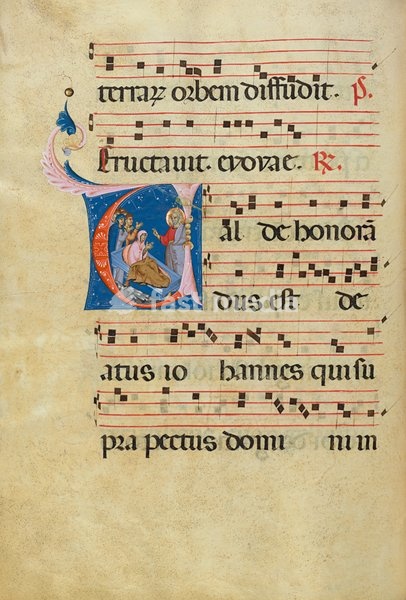 terraꝝ orbem diffudit. ℣.
Eructauit. evovae. ℟.
Val de honorā
dus est de
atus io hannes qui su
pra pectus domi ni in